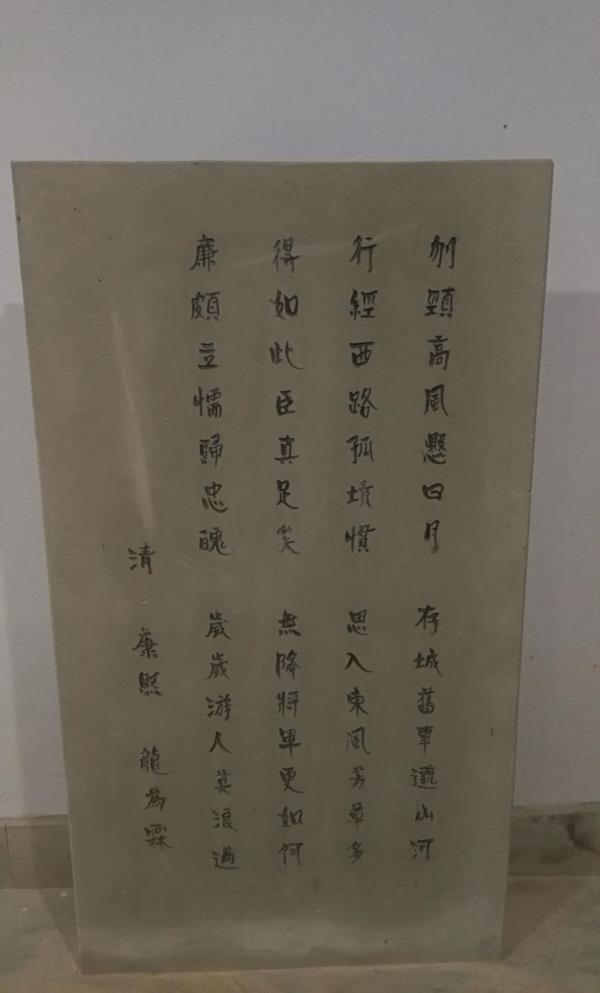 刎頸高風懸日月 存城舊事遶山河
行經西路孤墳慣 思入東風芳草多
得如此臣真足矣 無降將軍更如何
廉頗立懦歸忠魄 歲歲游人莫浪過
清 康熙 龍為霖